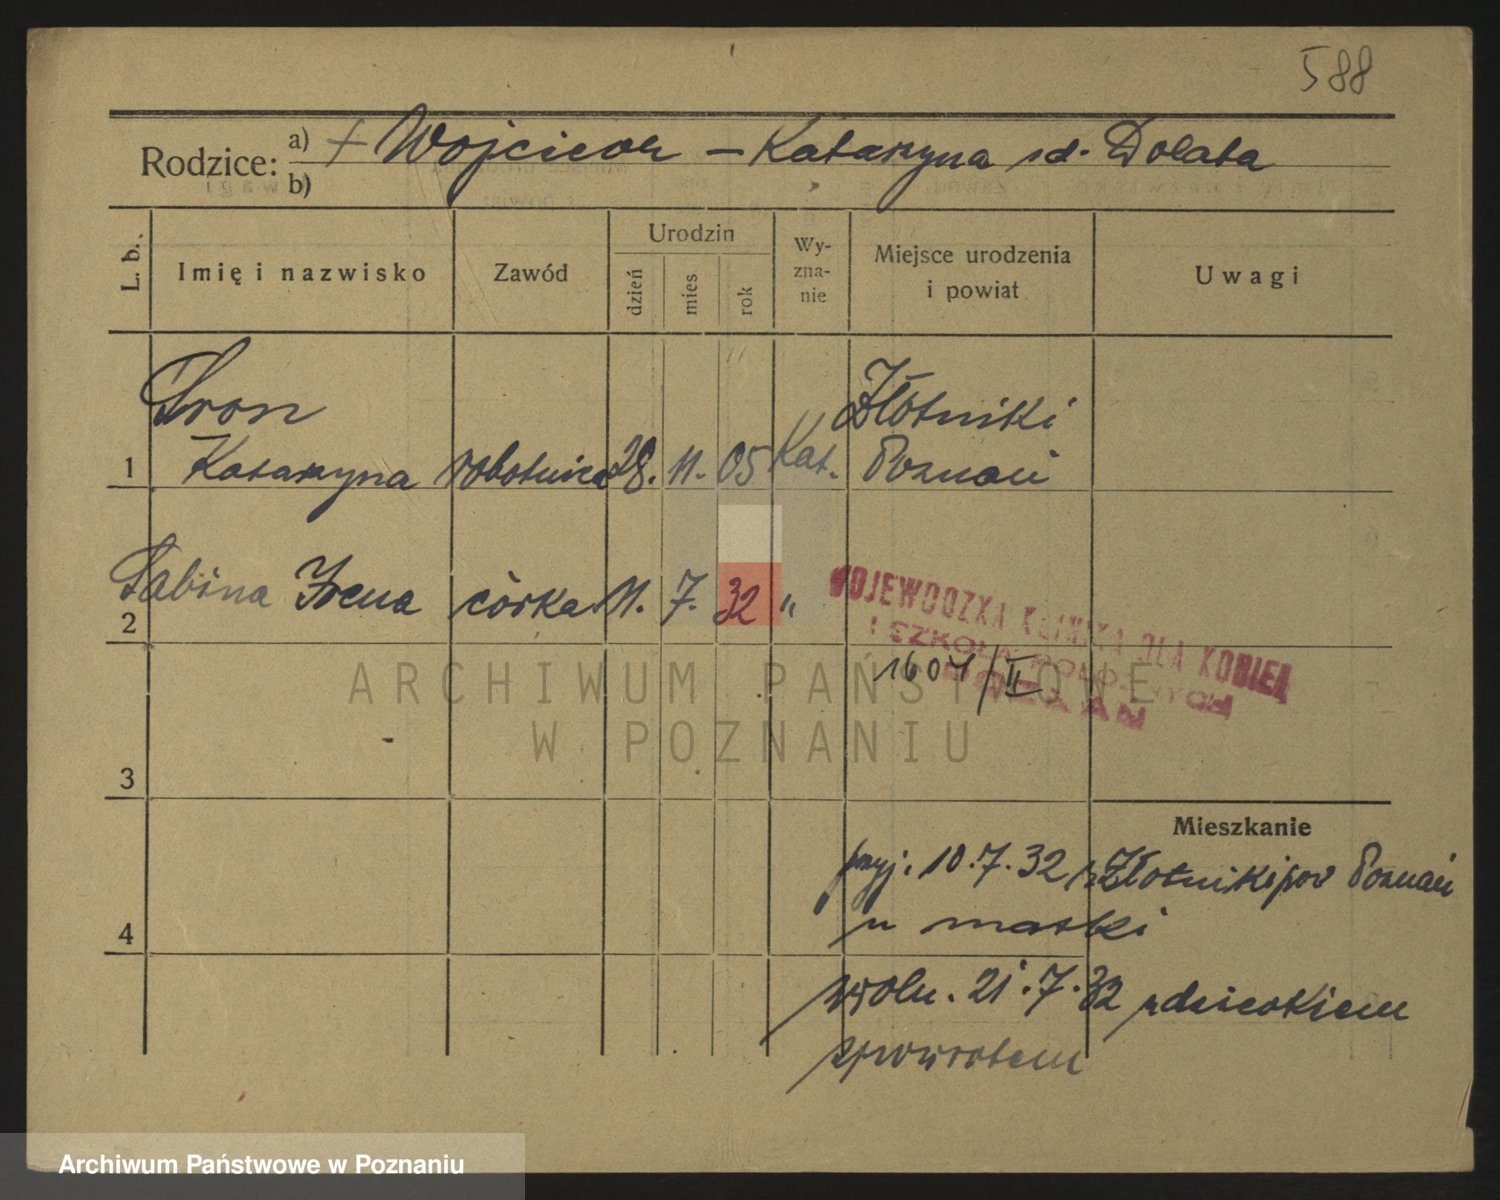 588
Rodzice: a) + Wojciech – Katarzyna zd. Dolata
b)
L. b. Imię i nazwisko Zawód Urodzin dzień mies rok Wyznanie Miejsce urodzenia i powiat Uwagi
Sron Złotniki
1 Katarzyna robotnica 28. 11. 05 Kat. Poznań
2 Sabina Irena córka 11. 7. 32 "
WOJEWÓDZKA KLINIKA DLA KOBIET
I SZKOŁA POŁOŻNYCH
POZNAŃ
1607/II
ARCHIWUM PAŃSTWOWE
W POZNANIU
3
Mieszkanie
przyj. 10.7.32 z Złotniki pow Poznań
4 u matki
zwoln. 21.7.32 z dzieckiem
zpowrotem
Archiwum Państwowe w Poznaniu